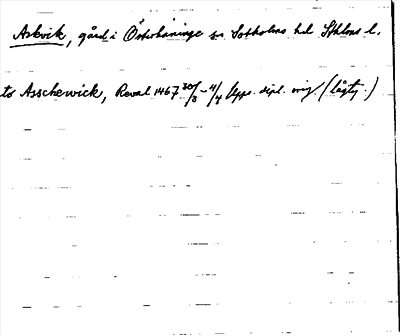 Askvik, gård i Österhaninge sn Sotholms hd Sthlms l.
to Asschewick, Reval 1467 30/3 - 4/4 Upps. dipl. orig. (lågty.)